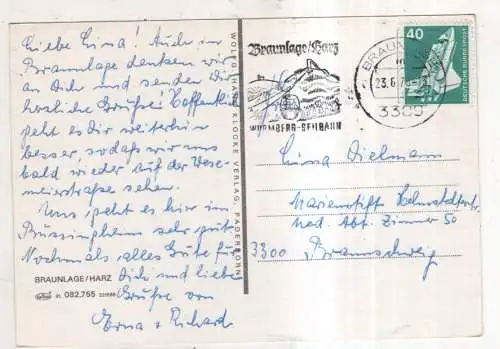 Liebe Lina! Auch in
Braunlage denken wir
an Dich und senden Dir
herzliche Grüße! Hoffentlich
geht es Dir weiterhin
besser, sodaß wir uns
bald wieder auf der Wese-
meierstraße sehen.
Uns geht es hier im
Büssingheim sehr gut.
Nochmals alles Gute für
Dich und liebe
Grüße von
Erna + Richard
BRAUNLAGE/HARZ
082.755
WOLFGANG HANS KLOCKE VERLAG, PADERBORN
Braunlage/Harz
WURMBERG-SEILBAHN
BRAUNLAGE
23.6.7
3389
40
DEUTSCHE BUNDESPOST
Lina Dielmann
Marienstift Helmstedterstr.
Med. Abt. Zimmer 50
3300 Braunschweig